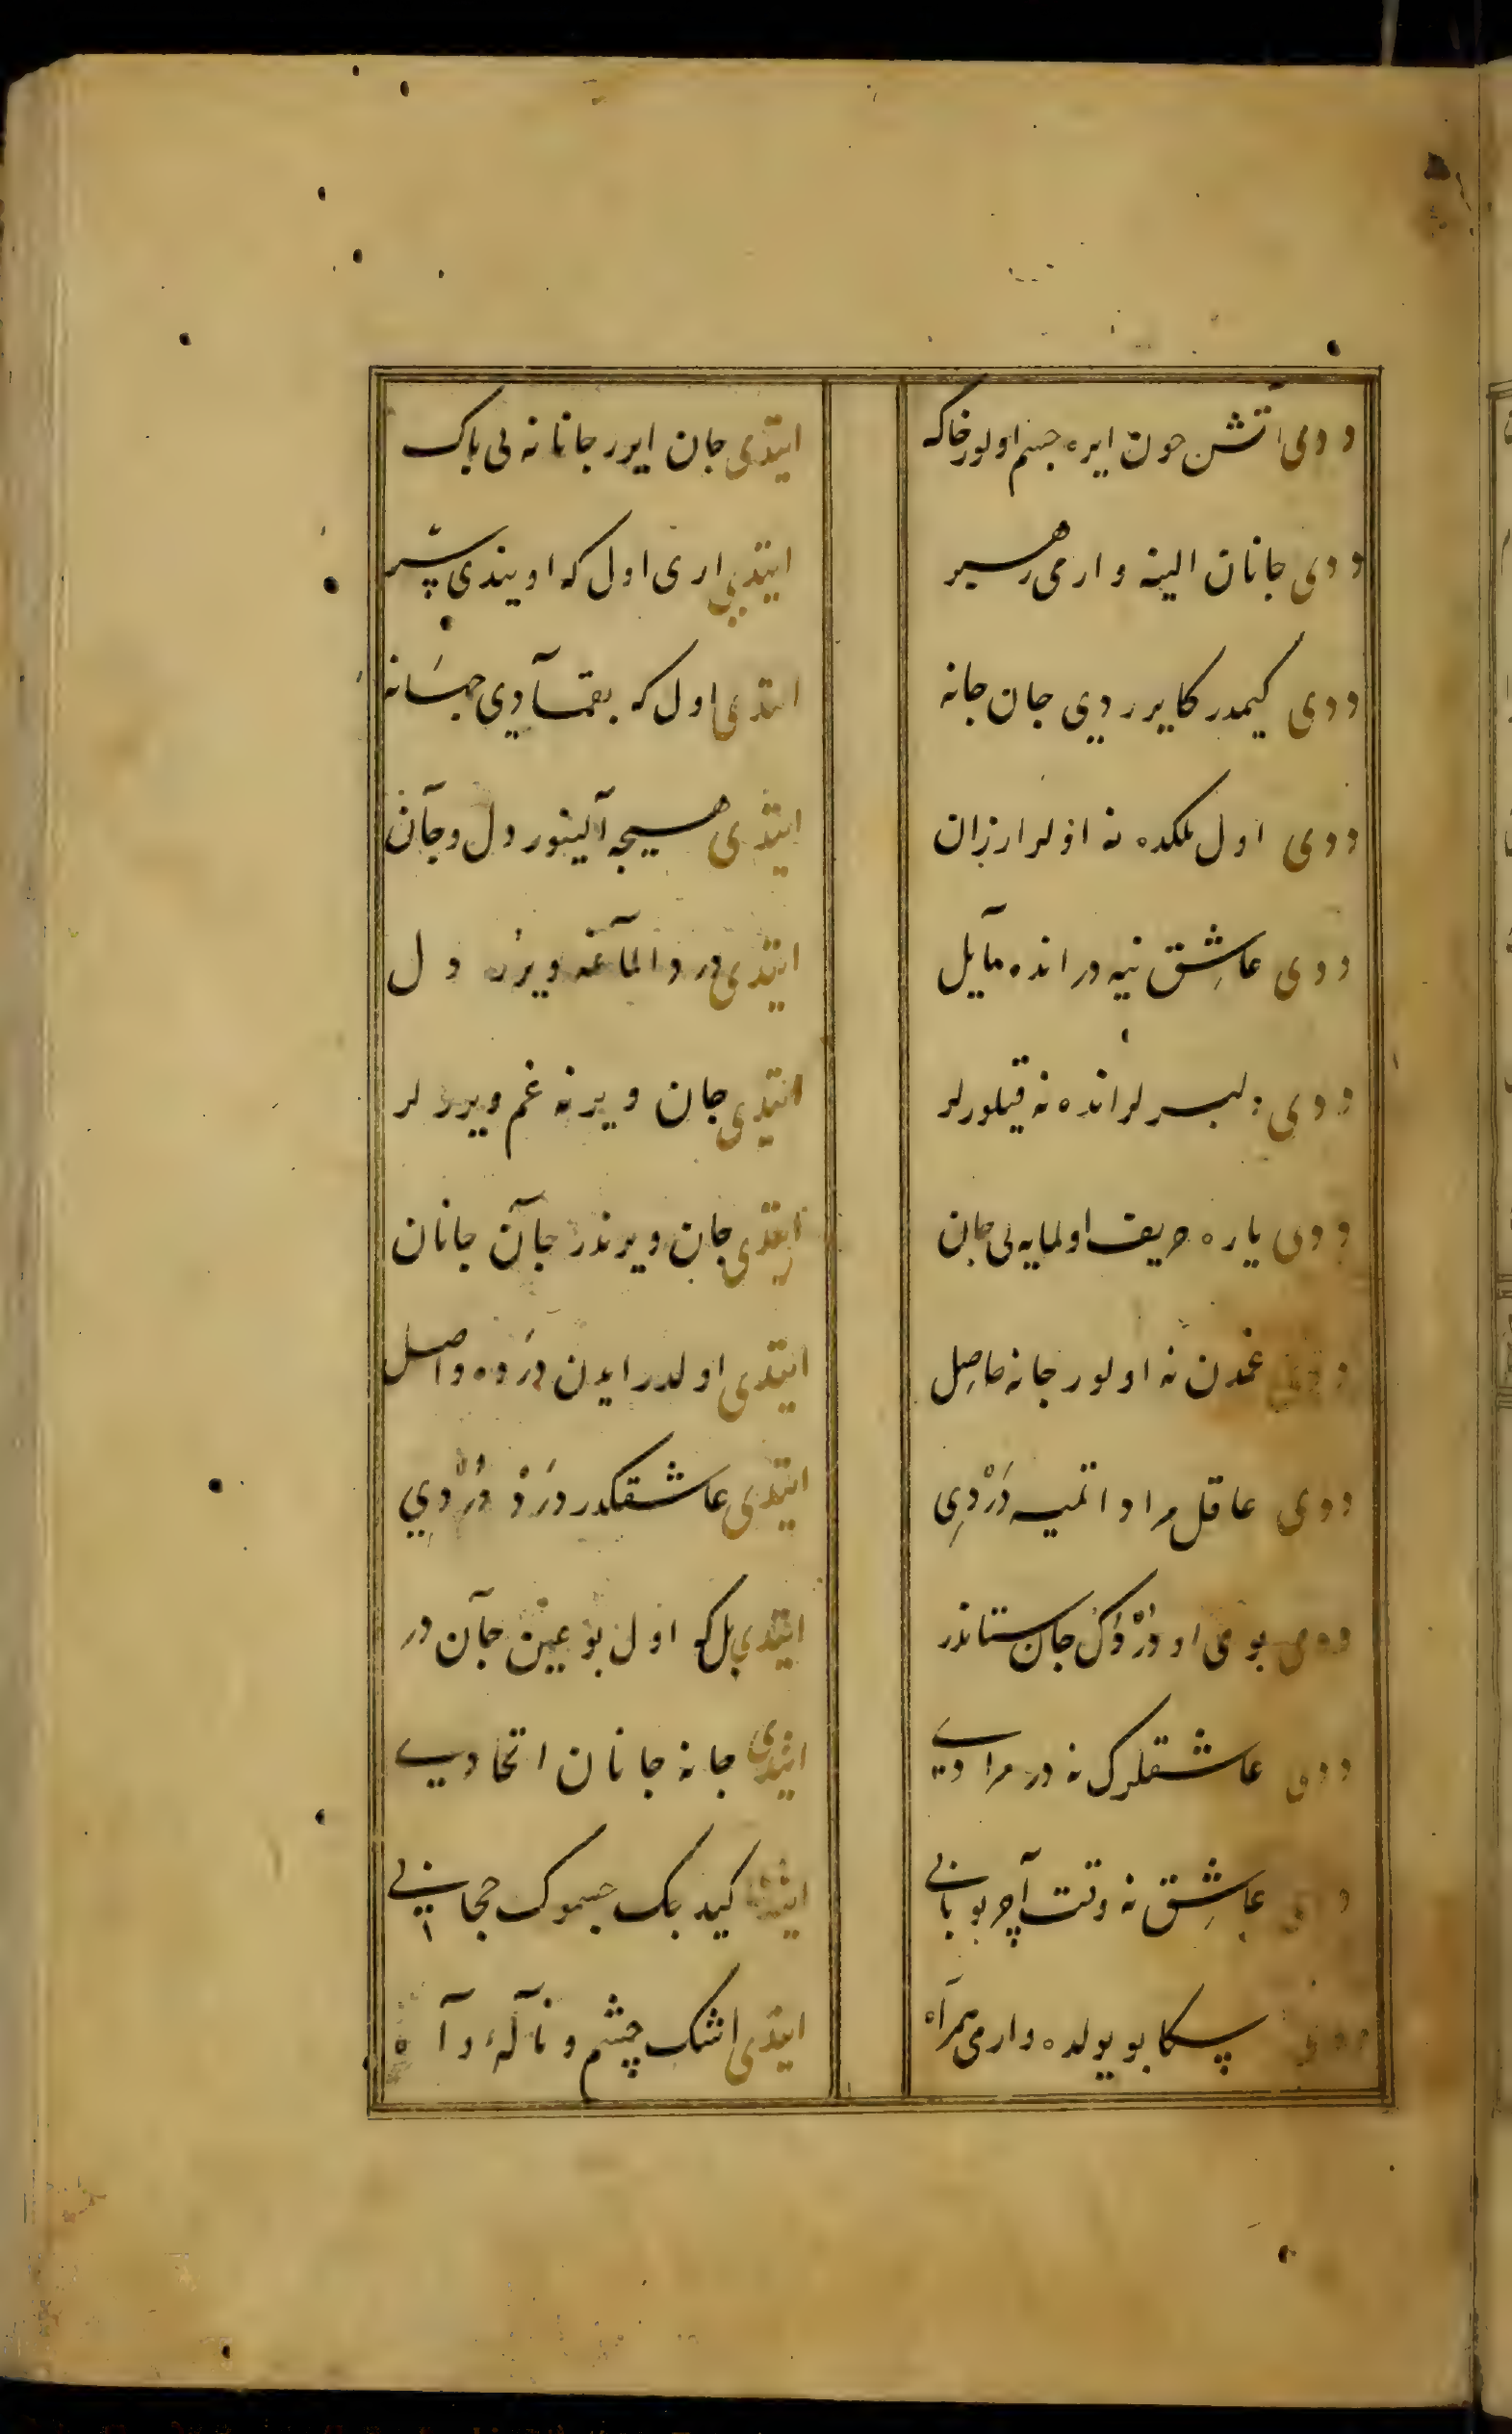 ددی آتش چون ایره جسم اولور خاک ایتدی جان ایرر جانانه بی باک
ددی جانان الینه وارمی رهبر ایتدی اری اول که اویندی
ددی کیمدر کایرر دیی جان جانه ایتدی اول که بقمادی جسانه
ددی اول ملکده نه اولر ارزان ایتدی هیچه آلینور دل و جان
ددی عاشق نیه در انده مایل ایتدی درد و الما غمه ویره دل
ددی دلبرلر انده نه قیلورلر ایتدی جان ویرنه غم ویررلر
ددی یاره حریف اولمایه بی جان ایتدی جان ویرندر جان جانان
ددی غمدن نه اولور جانه حاصل ایتدی اولدر ایدن درده واصل
ددی عاقل مراد اتمیه دَرْدِی ایتدی عاشقکدر دَرْدْ دُرْدِی
ددی بومی او دُرْدُک جان ستاندر ایتدی بل کو اول بو عین جان در
ددی عاشقلرک نه در مرادی ایتدی جانه جانان اتحادی
ددی عاشق نه وقت آچر بو بابی ایتدی کیدبک جسموک حجابی
ددی سکا بو یولده وارمی همراه ایتدی اشک چشم و نالهٔ و آه